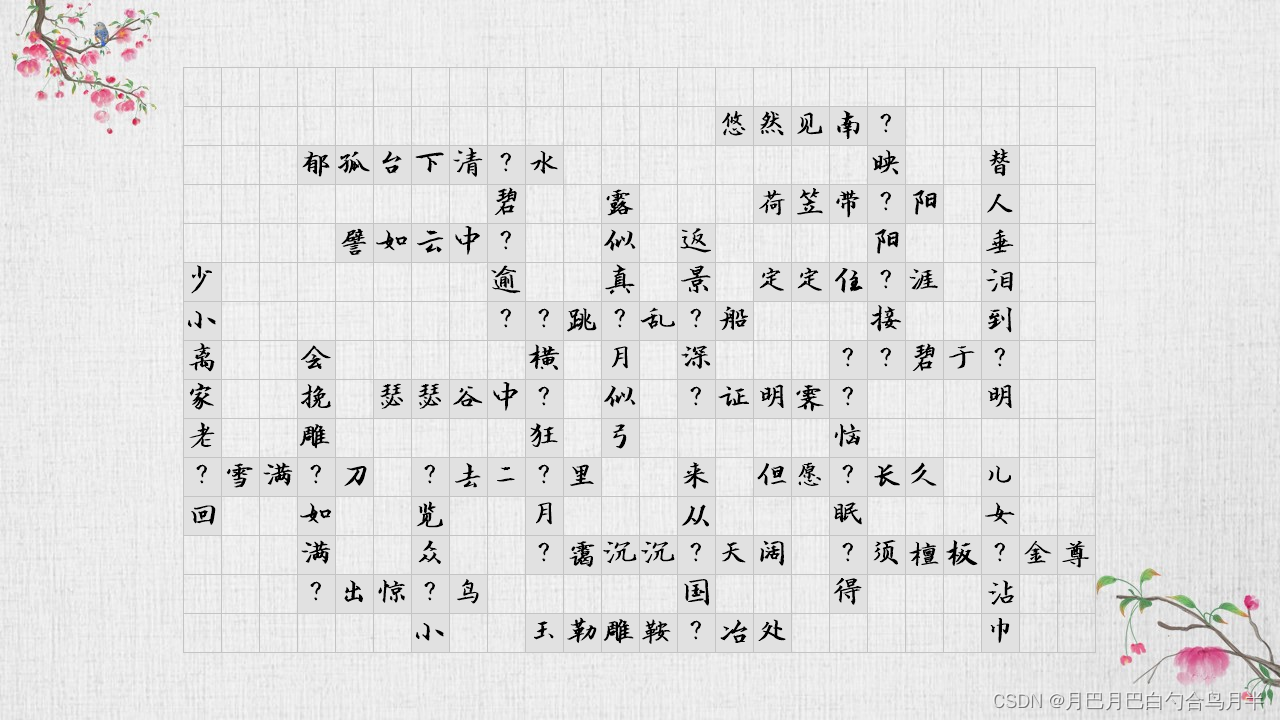 悠然见南?
郁孤台下清?水 映 替
碧 露 荷笠带?阳 人
譬如云中? 似 返 阳 垂
少 逾 真 景 定定住?涯 泪
小 ??跳?乱?船 接 到
离 会 横 月 深 ??碧于?
家 挽 瑟瑟谷中? 似 ?证明霁? 明
老 雕 狂 弓 恼
?雪满?刀 ?去二?里 来 但愿?长久 儿
回 如 览 月 从 眠 女
满 众 ?霭沉沉?天阔 ?须檀板?金尊
?出惊?鸟 国 得 沾
小 玉勒雕鞍?冶处 巾
CSDN @月巴月巴白勺合鸟月半